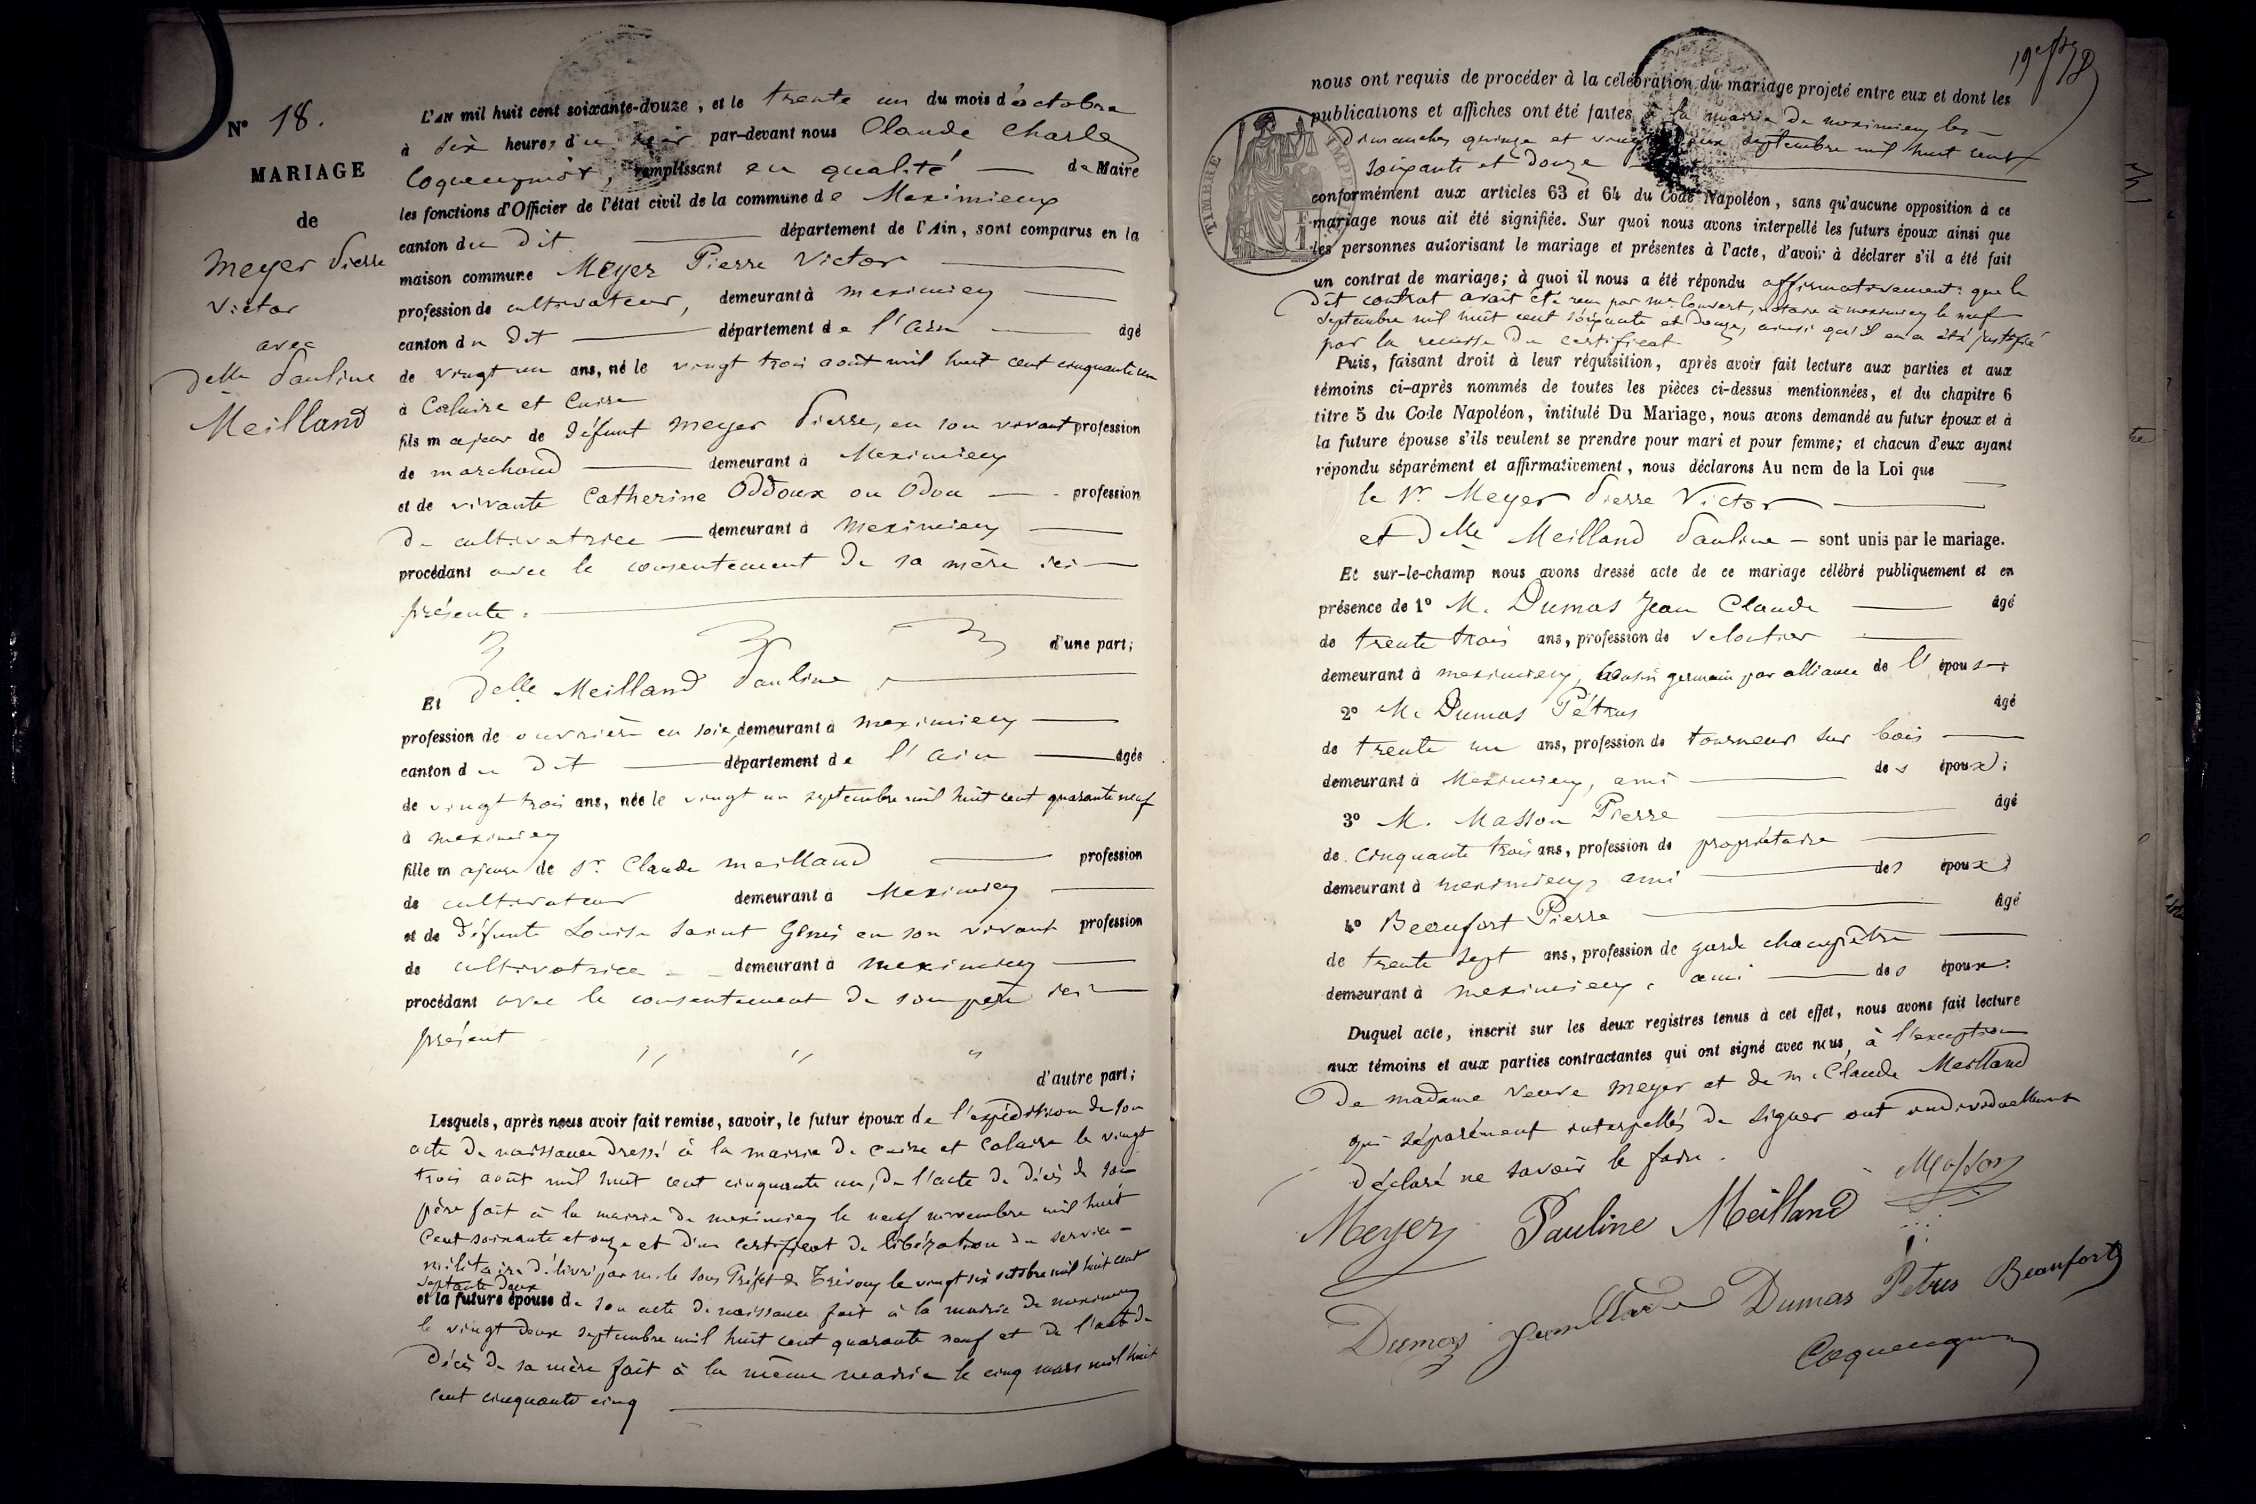 N° 18.
MARIAGE
de
Meyer Pierre
Victor
avec
Delle Pauline
Meilland
L'AN mil huit cent soixante-douze, et le trente un du mois d'octobre
à six heures du soir par-devant nous Claude Charles
Coquenquiot, remplissant en qualité de Maire
les fonctions d'Officier de l'état civil de la commune de Meximieux
canton du dit département de l'Ain, sont comparus en la
maison commune Meyer Pierre Victor
profession de cultivateur, demeurant à meximieux
canton du dit département de l'ain âgé
de vingt un ans, né le vingt trois août mil huit cent cinquante un
à Caluire et Cuire
fils majeur de défunt Meyer Pierre, en son vivant profession
de marchand demeurant à Meximieux
et de vivante Catherine Oddoux ou Odou profession
de cultivatrice demeurant à Meximieux
procédant avec le consentement de sa mère ici
présente.
d'une part;
Et Delle Meilland Pauline,
profession de ouvrière en soie, demeurant à meximieux
canton du dit département de l'ain âgée
de vingt trois ans, née le vingt un septembre mil huit cent quarante neuf
à meximieux
fille majeure de Sr. Claude Meilland profession
de cultivateur demeurant à Meximieux
et de défunte Louise Saint Genis en son vivant profession
de cultivatrice demeurant à meximieux
procédant avec le consentement de son père ici
présent
d'autre part;
Lesquels, après nous avoir fait remise, savoir, le futur époux de l'expédition de son
acte de naissance dressé à la mairie de Cuire et Caluire le vingt
trois août mil huit cent cinquante un, de l'acte de décès de son
père fait à la mairie de meximieux le neuf novembre mil huit
cent soixante et onze et d'un certificat de libération du service
militaire délivré par m. le Sous Préfet de Trévoux le vingt six octobre mil huit cent
septante deux
et la future épouse de son acte de naissance fait à la mairie de meximieux
le vingt deux septembre mil huit cent quarante neuf et de l'acte de
décès de sa mère fait à la même mairie le cinq mars mil huit
cent cinquante cinq
nous ont requis de procéder à la célébration du mariage projeté entre eux et dont les
publications et affiches ont été faites à la mairie de meximieux les
dimanches quinze et vingt deux septembre mil huit cent
soixante et douze
conformément aux articles 63 et 64 du Code Napoléon, sans qu'aucune opposition à ce
mariage nous ait été signifiée. Sur quoi nous avons interpellé les futurs époux ainsi que
les personnes autorisant le mariage et présentes à l'acte, d'avoir à déclarer s'il a été fait
un contrat de mariage; à quoi il nous a été répondu affirmativement: que le
dit contrat avait été reçu par Me Couvert, notaire à meximieux le neuf
septembre mil huit cent soixante et douze, ainsi qu'il en a été justifié
par la remise du certificat
Puis, faisant droit à leur réquisition, après avoir fait lecture aux parties et aux
témoins ci-après nommés de toutes les pièces ci-dessus mentionnées, et du chapitre 6
titre 5 du Code Napoléon, intitulé Du Mariage, nous avons demandé au futur époux et à
la future épouse s'ils veulent se prendre pour mari et pour femme; et chacun d'eux ayant
répondu séparément et affirmativement, nous déclarons Au nom de la Loi que
le Sr Meyer Pierre Victor
et Delle Meilland Pauline sont unis par le mariage.
Et sur-le-champ nous avons dressé acte de ce mariage célébré publiquement et en
présence de 1° M. Dumas Jean Claude âgé
de trente trois ans, profession de
demeurant à meximieux, cousin germain par alliance de l'épouse
2° M. Dumas Pétrus âgé
de trente un ans, profession de tourneur sur bois
demeurant à Meximieux, ami des époux;
3° M. Masson Pierre âgé
de cinquante trois ans, profession de propriétaire
demeurant à meximieux, ami des époux;
4° Beaufort Pierre âgé
de trente sept ans, profession de garde champêtre
demeurant à meximieux, ami des époux.
Duquel acte, inscrit sur les deux registres tenus à cet effet, nous avons fait lecture
aux témoins et aux parties contractantes qui ont signé avec nous, à l'exception
de madame veuve Meyer et de m. Claude Meilland
qui séparément interpellés de signer ont individuellement
déclaré ne savoir le faire.
Masson
Meyer Pauline Meilland
Dumas Jean Claude Dumas Pétrus Beaufort
TIMBRE